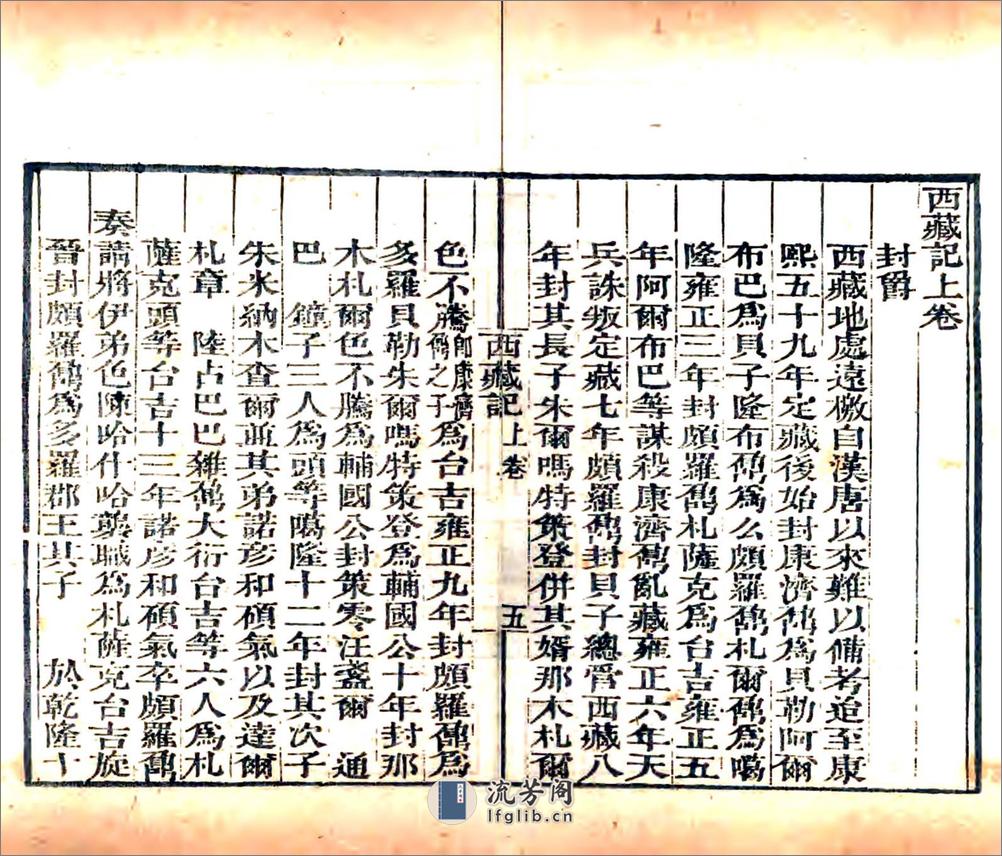 西藏記上卷
封爵
西藏地處遠徼自漢唐以來難以備考迨至康
熙五十九年定藏後始封康濟鼐為貝勒阿爾
布巴為貝子隆布鼐為公頗羅鼐札爾鼐為噶
隆雍正三年封頗羅鼐札薩克為台吉雍正五
年阿爾布巴等謀殺康濟鼐亂藏雍正六年天
兵誅叛定藏七年頗羅鼐封貝子總管西藏八
年封其長子朱爾嗎特策登併其婿那木札爾
西藏記 上卷 五
色不騰即康濟鼐之子為台吉雍正九年封頗羅鼐為
多羅貝勒朱爾嗎特策登為輔國公十年封那
木札爾色不騰為輔國公封策零汪盞爾 通
巴 鐘子三人為頭等噶隆十二年封其次子
朱米納木查爾並其弟諾彥和碩氣以及達爾
札章 陸占巴巴雜鼐大衍台吉等六人為札
薩克頭等台吉十三年諾彥和碩氣卒頗羅鼐
奏請將伊弟色陳哈什哈襲職為札薩克台吉旋
晉封頗羅鼐為多羅郡王其子 於乾隆十
流芳阁
lfglib.cn